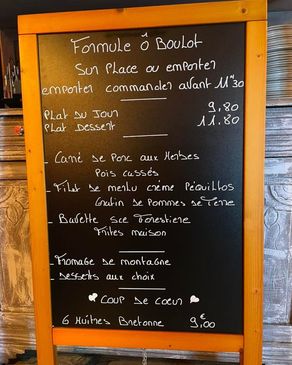 Formule Ô Boulot
Sur Place ou emporter
emporter commander avant 11H30
Plat du Jour 9.80
Plat Dessert 11.80
- Carré de Porc aux Herbes
Pois cassés
- Filet de merlu crème Péquillos
Gratin de Pommes de Terre
- Bavette sce Forestiere
Frites maison
- Fromage de montagne
- Desserts aux choix
Coup de coeur
6 Huîtres Bretonne 9€,00